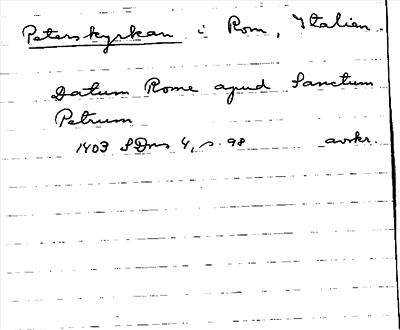 Peterskyrkan i Rom, Italien.
Datum Rome apud Sanctum
Petrum
1403 SDns 4, s. 98 avskr.